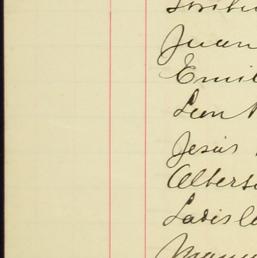 Juan
Emil
Leon
Jesús
Alberto
Ladisl
Manu